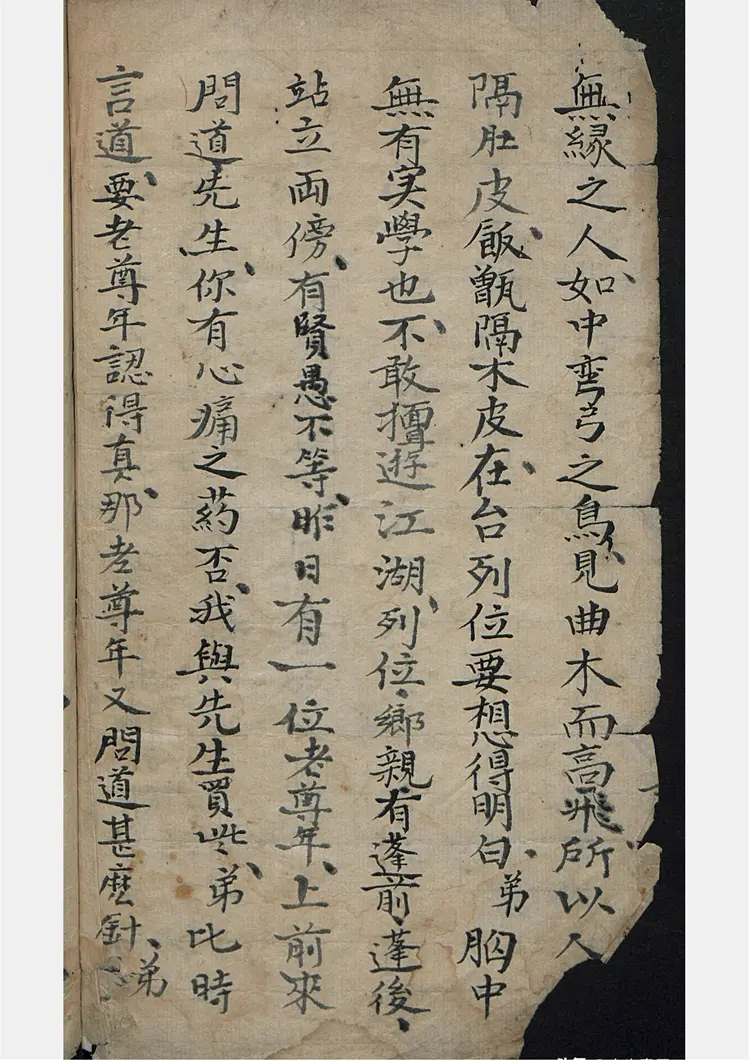 無緣之人、如中弯弓之鳥、見曲木而高飛、所以人
隔肚皮、飯甑隔木皮、在台列位要想得明白、弟胸中
無有实學也、不敢擅遊江湖、列位、鄉親有蓬前、蓬後、
站立両傍、有賢愚不等、昨日有一位老尊年、上前來
問道先生、你有心痛之药否、我與先生買些、弟比時
言道、要老尊年認得真、那老尊年又問道甚麽針、弟